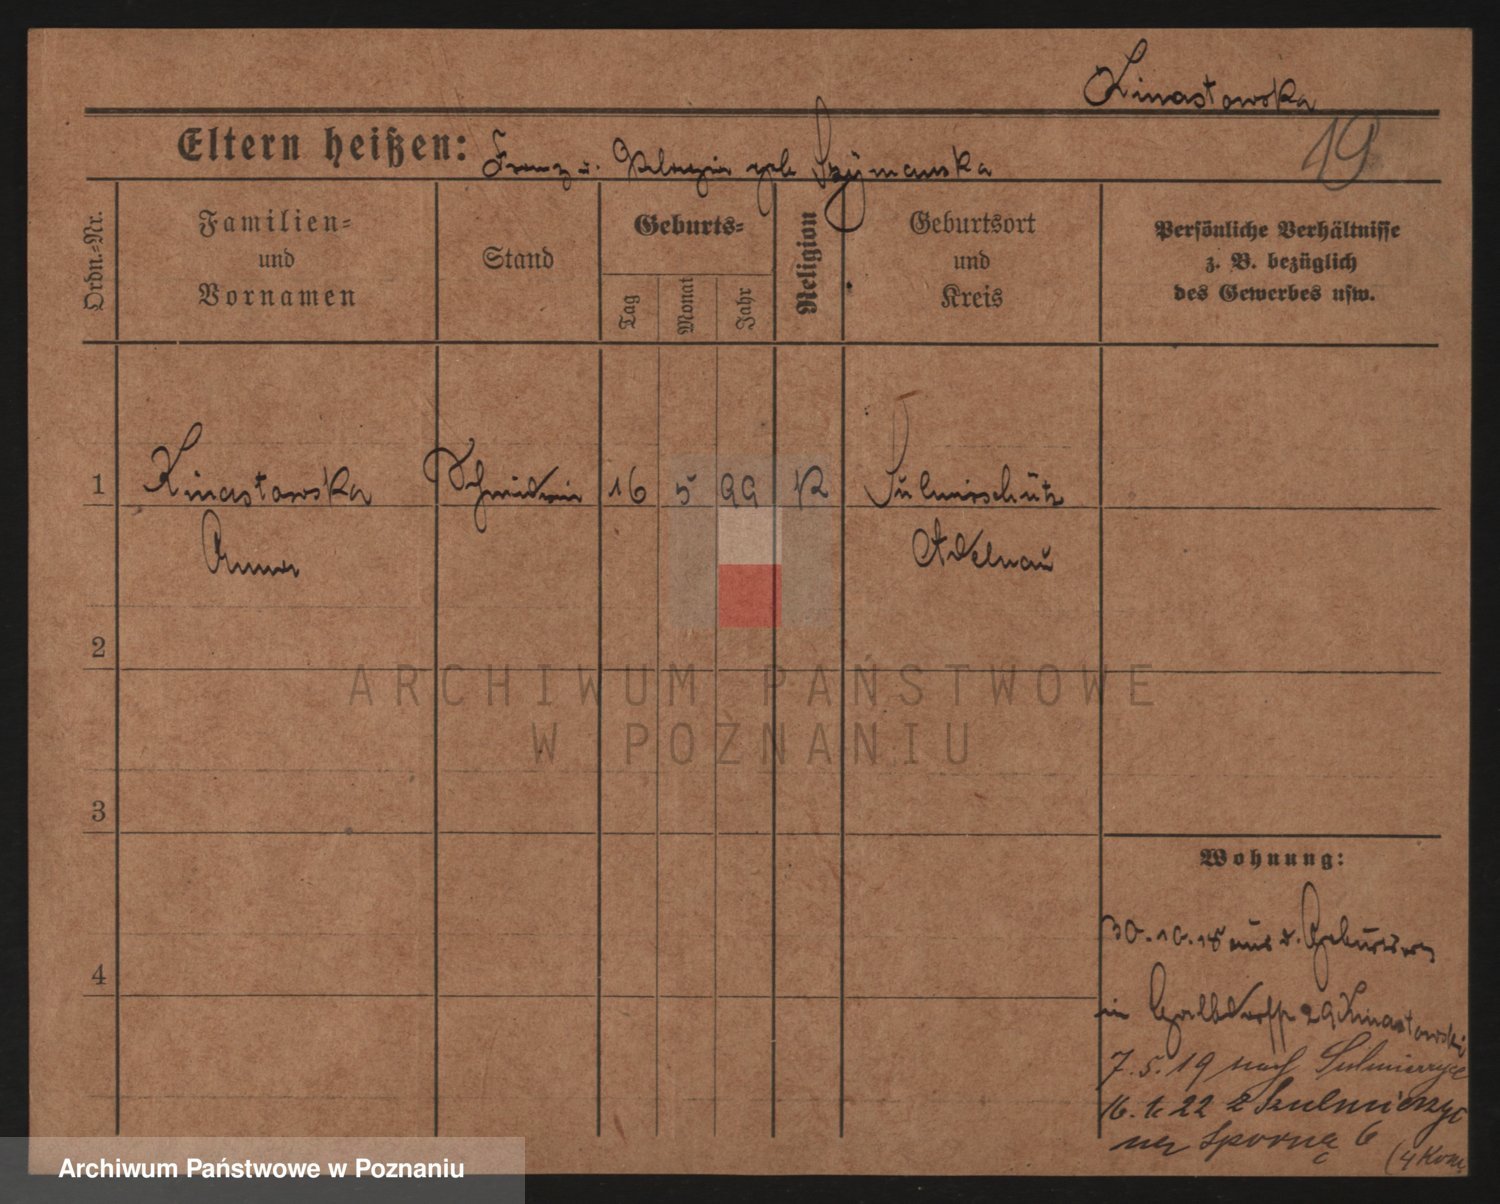 Kinastowska
19
Eltern heißen: Franz u. Pelagia geb Szymanska
Ordn.-Nr.
Familien-
und
Vornamen
Stand
Geburts-
Tag
Monat
Jahr
Religion
Geburtsort
und
Kreis
Persönliche Verhältnisse
z. B. bezüglich
des Gewerbes usw.
1 Kinastowska Schneiderin 16 5 99 K Sulmirschütz
Anna Adelnau
2
ARCHIWUM PAŃSTWOWE
W POZNANIU
3
Wohnung:
4
30.10.18 aus d. Geburtsort
in 29 Kinastowski
7.5.19 nach Sulmierzyce
16.1.22 z Szulmierzyc
na Sporną 6
Archiwum Państwowe w Poznaniu